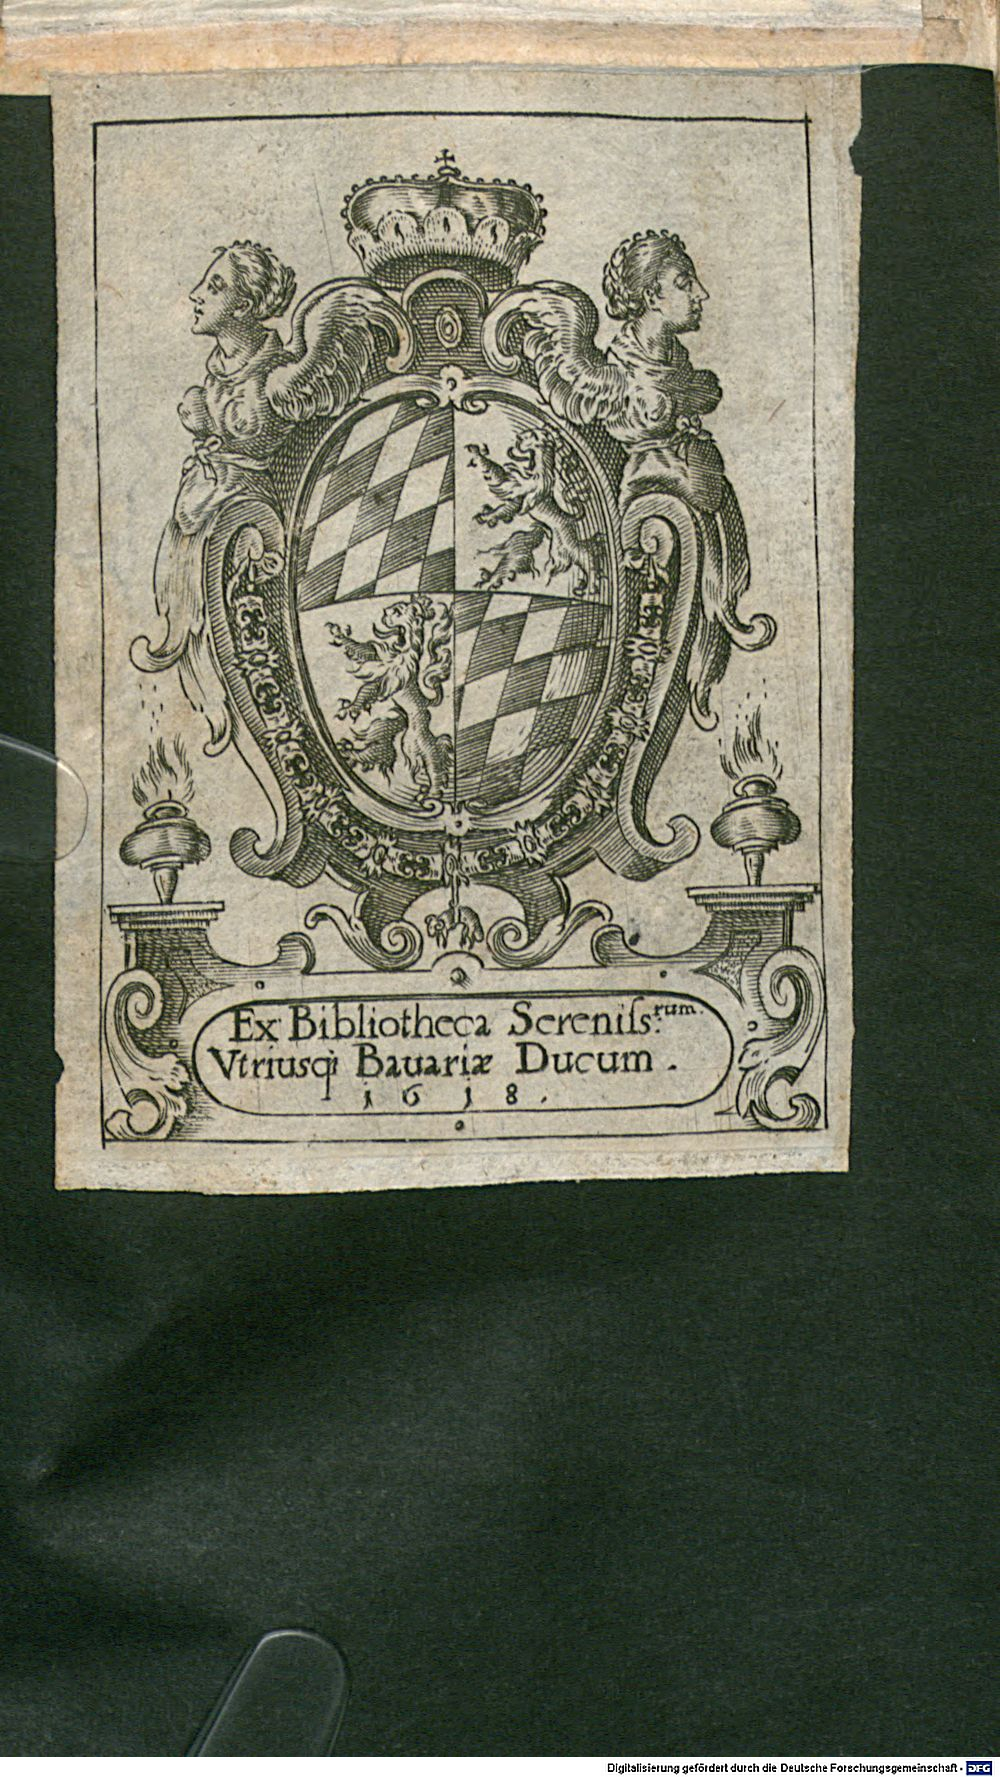 Ex Bibliotheca Sereniſs:rum.
Vtriusq; Bavariæ Ducum.
1618.
Digitalisierung gefördert durch die Deutsche Forschungsgemeinschaft - DFG